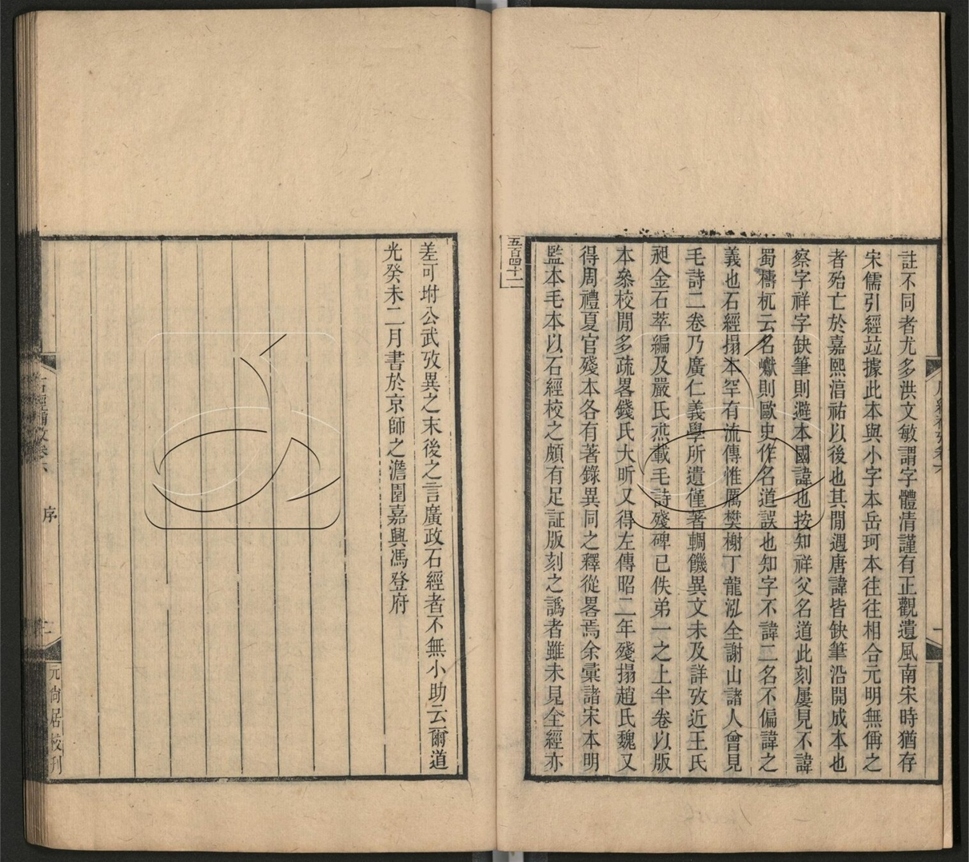 註不同者尤多洪文敏謂字體清謹有正觀遺風南宋時猶存
宋儒引經竝據此本與小字本岳珂本往往相合元明無偁之
者殆亡於嘉熙淯祐以後也其閒遇唐諱皆缺筆沿開成本也
察字祥字缺筆則避本國諱也按知祥父名道此刻屢見不諱
蜀檮杌云名巘則歐史作名道誤也知字不諱二名不偏諱之
義也石經搨本罕有流傳惟厲樊榭丁龍泓全謝山諸人曾見
毛詩二卷乃廣仁義學所遺僅著輖饑異文未及詳攷近王氏
昶金石萃編及嚴氏烝載毛詩殘碑已佚弟一之上半卷以版
本叅校閒多疏畧錢氏大昕又得左傳昭二年殘搨趙氏魏又
得周禮夏官殘本各有著錄異同之釋從畧焉余彙諸宋本明
監本毛本以石經校之頗有足証版刻之譌者雖未見全經亦
五百四十二
差可坿公武攷異之末後之言廣政石經者不無小助云爾道
光癸未二月書於京師之澹園嘉興馮登府
石經補攷卷六
序
二
元尚居校刊